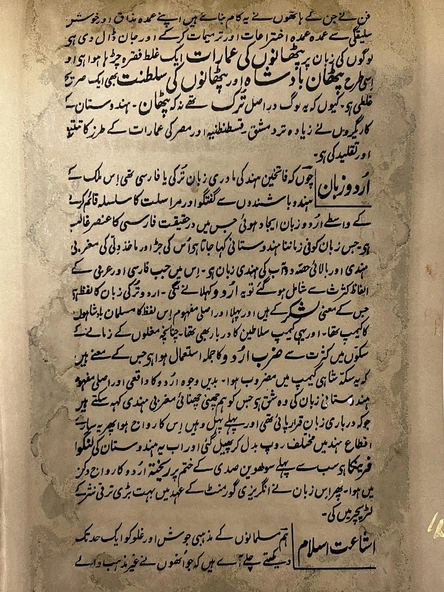 فن نے جن کے ہاتھوں نے یہ کام بنائے ہیں اپنے عمدہ مذاق اور خوش
سلیقگی سے عمدہ عمدہ اختراعات اور ترمیمات کر کے اور جان ڈال دی ہے
لوگوں کی زبان پر پٹھانوں کی عمارات ایک غلط فقرہ چڑھا ہوا ہے اور
اسی طرح پٹھان بادشاہ اور پٹھانوں کی سلطنت بھی ایک صریح
غلطی ہے۔ کیوں کہ یہ لوگ دراصل ترک تھے نہ کہ پٹھان۔ ہندوستان کے
کاریگروں نے زیادہ تر دمشق۔ قسطنطنیہ اور مصر کی عمارات کے طرز کا تتبع
اور تقلید کی ہے۔
اردو زبان
چوں کہ فاتحین ہند کی مادری زبان ترکی یا فارسی تھی اس ملک کے
ہندو باشندوں سے گفتگو اور مراسلت کا سلسلہ قائم کرنے
کے واسطے اردو زبان ایجاد ہوئی جس میں درحقیقت فارسی کا عنصر غالب
ہے۔ جس زبان کو فی زماننا ہندوستانی کہا جاتا ہے اس کی جڑ اور ماخذ دلی کی مغربی
ہندی اور بالائی حصہ دوآب کی ہندی زبان ہے۔ اس میں جب فارسی اور عربی کے
الفاظ کثرت سے شامل ہو گئے تو یہ اردو کہلانے لگی۔ اردو ترکی زبان کا لفظ ہے
جس کے معنی لشکر کے ہیں اور پہلا اور اصلی مفہوم اس لفظ کا مسلمان بادشاہوں
کا کیمپ تھا۔ اور یہی کیمپ سلاطین کا دربار بھی تھا۔ چنانچہ مغلوں کے زمانے کے
سکوں میں کثرت سے ضرب اردو کا جملہ استعمال ہوا ہے جس کے معنے ہیں
کہ یہ سکہ شاہی کیمپ میں مضروب ہوا۔ بدیں وجوہ اردو کا واقعی اور اصلی مفہوم
ہندوستانی زبان کی وہ شق ہے جس کو ہم چھنی چھنائی مغربی ہندی کہہ سکتے ہیں
جو کہ درباری زبان قرار پائی تھی۔ اور پہلے پہل وہیں اس کا رواج ہوا پھر یہ سارے
اقطاع ہند میں مختلف روپ بدل کر پھیل گئی اور اب یہ ہندوستان کی لنگوا
فرینکا ہے سب سے پہلے سولھویں صدی کے ختم پر ریختہ اردو کا رواج دکن
میں ہوا۔ پھر اس زبان نے انگریزی گورمنٹ کے عہد میں بہت بڑی ترقی نثر کے
لٹریچر میں کی۔
اشاعت اسلام
ہم مسلمانوں کے مذہبی جوش اور غلو کو ایک حد تک
دیکھتے چلے آئے ہیں کہ جو انھوں نے غیر مذہب والے